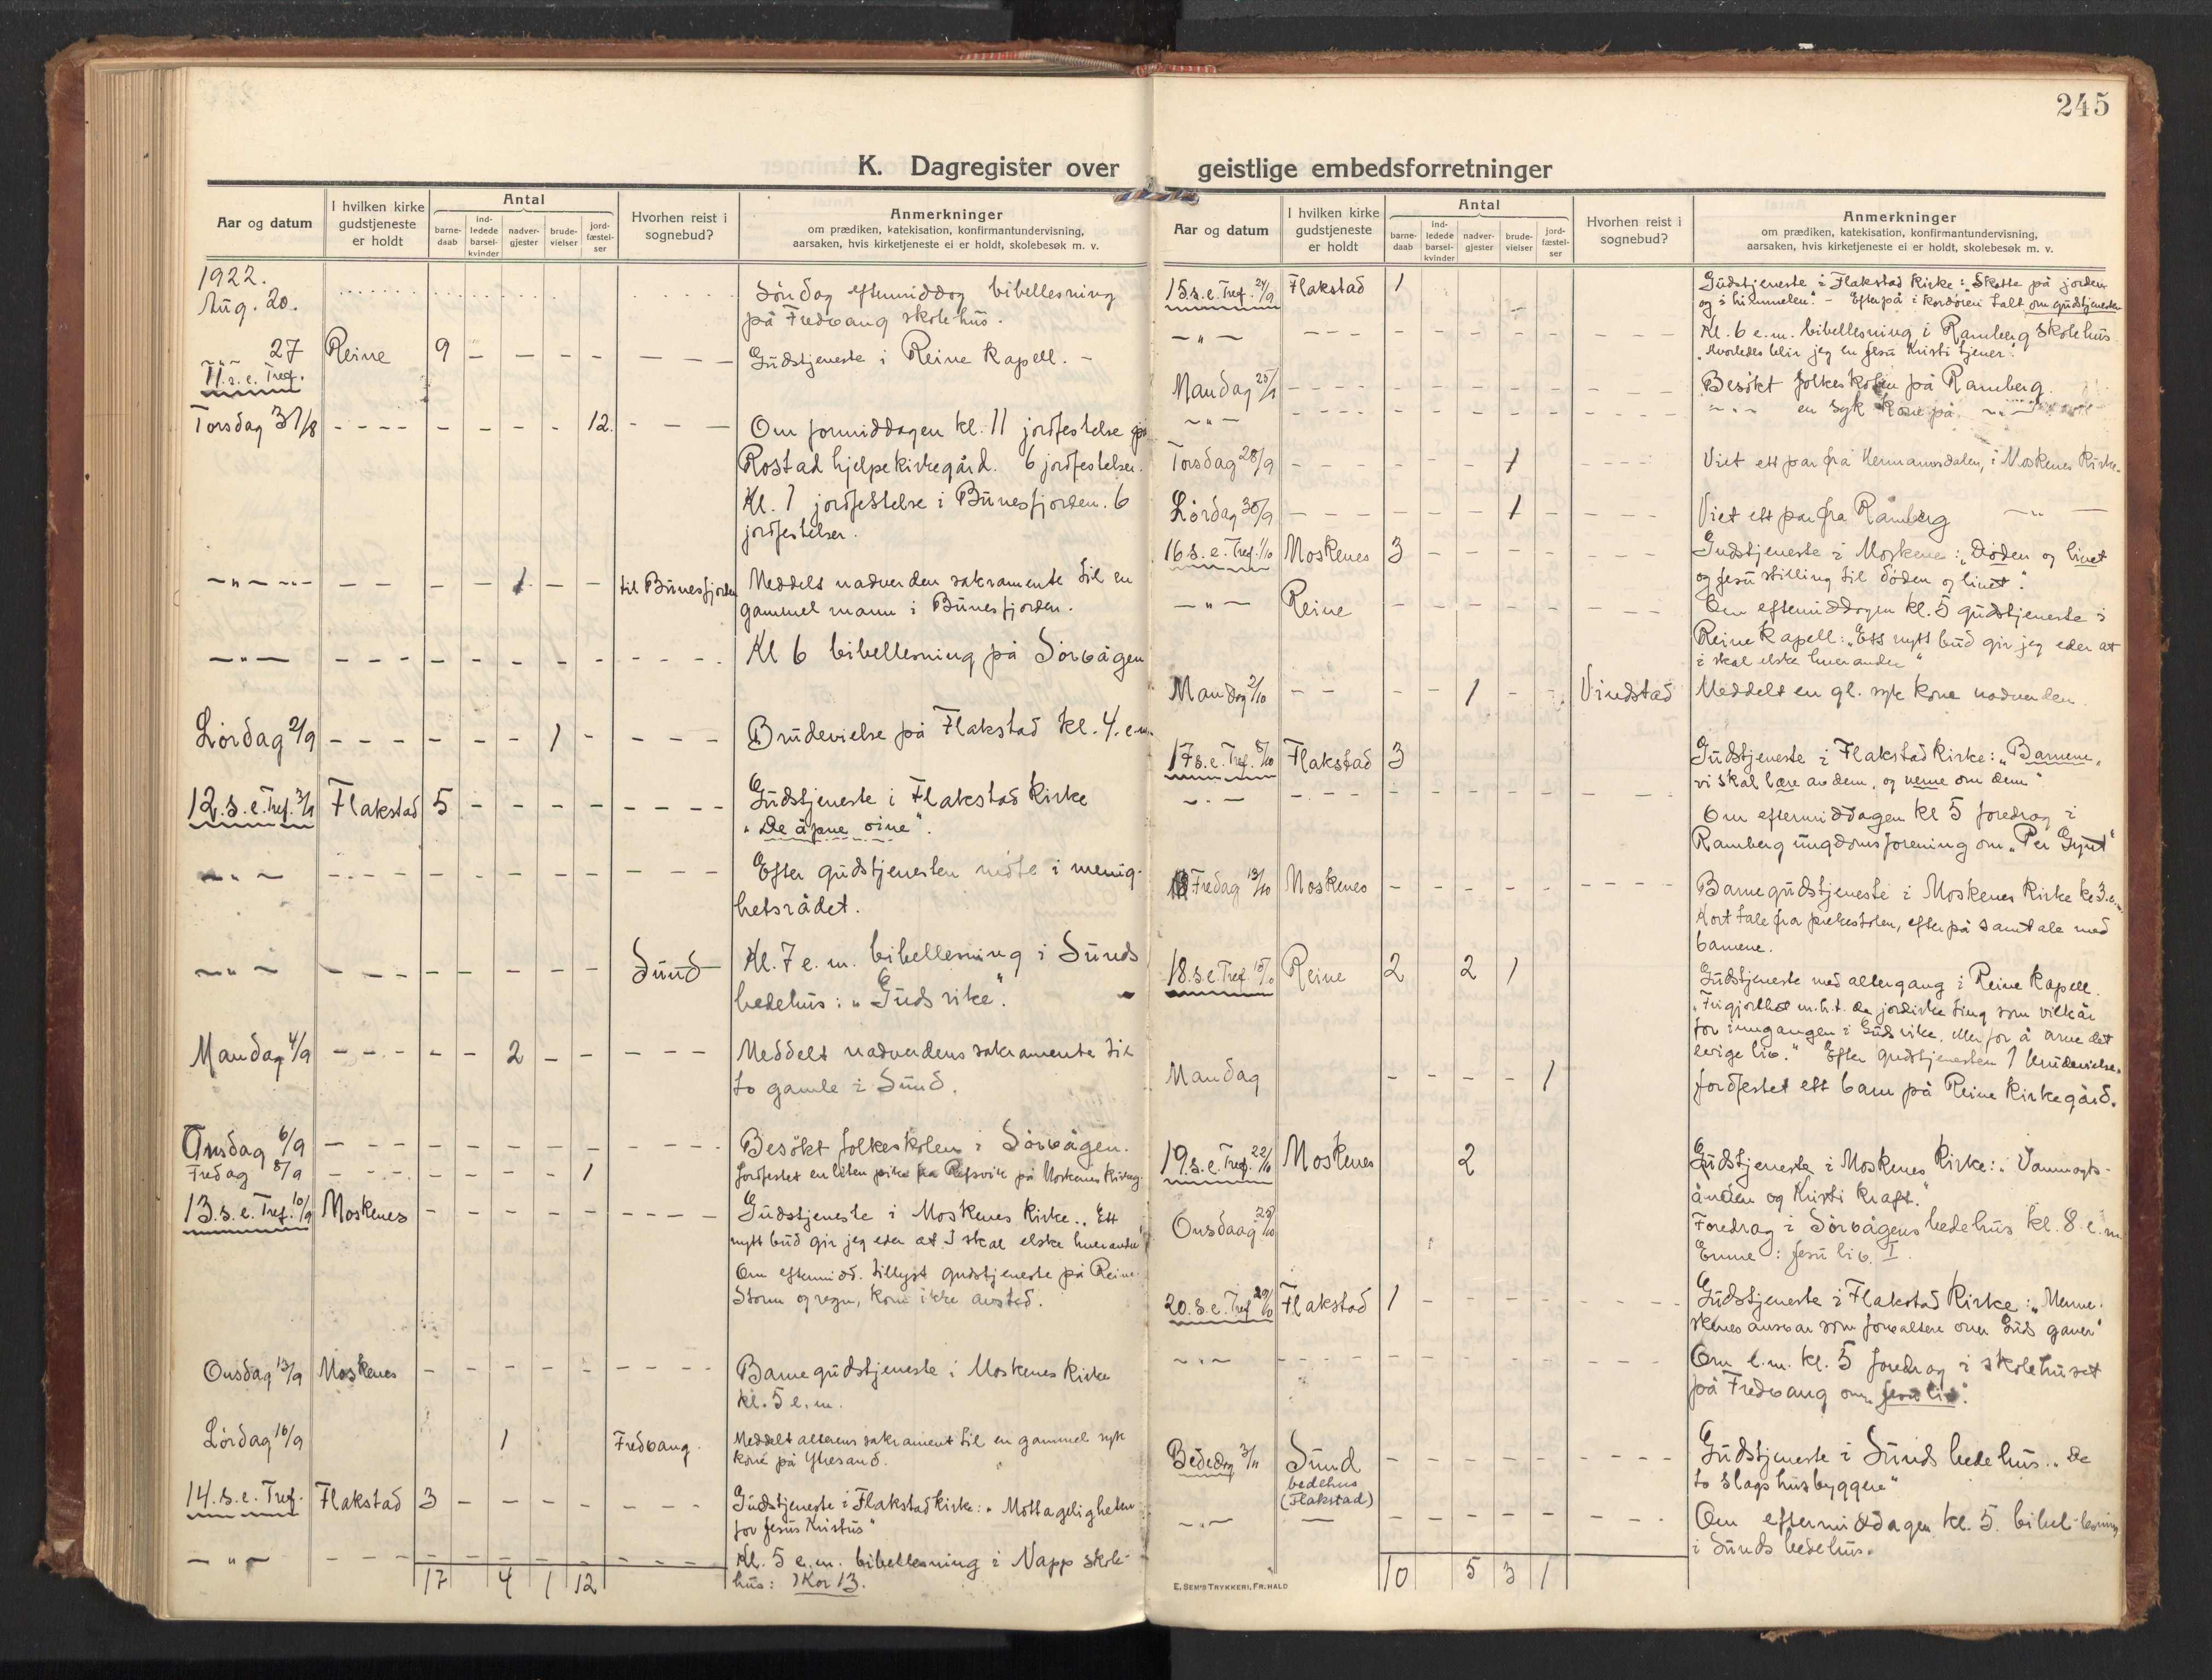 245
K. Dagregister over geistlige embedsforretninger
Aar og datum
I hvilken kirke gudstjeneste er holdt
Antal
barnedaab
indledede barselkvinder
nadvergjester
brudevielser
jordfæstelser
Hvorhen reist i sognebud?
Anmerkninger
om prædiken, katekisation, konfirmantundervisning,
aarsaken, hvis kirketjeneste ei er holdt, skolebesøk m. v.
1922.
Aug. 20. Søndag eftermiddag bibellesning
på Fredvang skolehus.
-"- 27 Reine 9 - - - - - - - Gudstjeneste i Reine Kapell. -
11. s. e. Tref.
Torsdag 31/8 - - - - - - - - 12. - - - Om formiddagen kl. 11 jordfestelse på
Rostad hjelpekirkegård. 6 jordfestelser.
Kl. 1 jordfestelse i Bunesfjorden. 6
jordfestelser.
-"- -"- - - - - 1 - - til Bunesfjorden Meddelt nadverdens sakramente til en
gammel mann i Bunesfjorden.
-"- - - - - - - - - - Kl 6 bibellesning på Sørvågen
Lördag 2/9 - - - - - - - 1 - - - - Brudevielse på Flakstad kl. 4. e.m.
12. s. e. Tref. 3/9 Flakstad 5 - - - - - - - - Gudstjeneste i Flakstad Kirke
"De åpne øine".
-"- - - - - - - - - - Efter gudstjenesten møte i menig-
hetsrådet.
-"- - - - - - - - - - Sund Kl. 7 e. m. bibellesning i Sunds
bedehus: "Guds rike".
Mandag 4/9 - - - - - 2 - - - - - Meddelt nadverdens sakramente til
to gamle i Sund.
Onsdag 6/9 - - - - - - - - - - - Besökt folkeskolen i Sörvågen.
Fredag 8/9 - - - - - - - 1 Jordfestet en liten pike fra Refsvik på Moskenes Kirkeg.
13. s. e. Tref. 10/9 Moskenes - - - - - - - - - Gudstjeneste i Moskenes Kirke.. "Ett
nytt bud gir jeg eder at I skal elske hverandre"
Om eftermidd. tillyst gudstjeneste på Reine.
Storm og regn, kom ikke avsted.
Onsdag 13/9 Moskenes - - - - - - - - - Barnegudstjeneste i Moskenes Kirke
kl. 5 e. m.
Lördag 16/9 1 Fredvang. Meddelt alterens sakrament til en gammel syk
kone på Ytresand.
14. s. e. Tref. Flakstad 3 - - - - - - - - Gudstjeneste i Flakstad Kirke: "Mottageligheten
for Jesus Kristus"
-"- - - - - - - - - - - - Kl. 5 e. m. bibellesning i Napp skole-
hus: 1 Kor 13.
17 4 1 12
Aar og datum
I hvilken kirke gudstjeneste er holdt
Antal
barnedaab
indledede barselkvinder
nadvergjester
brudevielser
jordfæstelser
Hvorhen reist i sognebud?
Anmerkninger
om prædiken, katekisation, konfirmantundervisning,
aarsaken, hvis kirketjeneste ei er holdt, skolebesøk m. v.
15. s. e. Tref. 24/9 Flakstad 1 Gudstjeneste i Flakstad Kirke: "Skatte på jorden
og i himmelen". - Efterpå i koret talt om gudstjenesten
-"- - - - - - - - - - - - Kl. 6 e. m. bibellesning i Ramberg skolehus.
"Hvorledes blir jeg en Jesu Kristi tjener".
Mandag 25/9 - - - - - - - - - - - Besökt folkeskolen på Ramberg.
-"- - - - - - - - - - - - -"- en syk kone på -"-
Torsdag 28/9 - - - - - - 1 - - - Viet ett par fra Hermannsdalen, i Moskenes Kirke.
Lördag 30/9 - - - - - - 1 - - - - Viet ett par fra Ramberg -"-
16. s. e. Tref. 1/10 Moskenes 3 - - - - - - - Gudstjeneste i Moskenes: "Döden og livet
og Jesu stilling til döden og livet".
-"- Reine - - - - - - - - Om eftermiddagen kl. 5 gudstjeneste i
Reine Kapell: "Ett nytt bud gir jeg eder at
i skal elske hverandre"
Mandag 2/10 - - - - 1 - - Vindstad Meddelt en gl. syk kone nadverden.
17 s. e. Tref. 8/10 Flakstad 3 Gudstjeneste i Flakstad Kirke: "Barnene,
vi skal lære av dem, og verne om dem"
-"- - - - - - - - - - - Om eftermiddagen kl 5 foredrag i
Ramberg ungdomsforening om "Per Gynt"
Fredag 13/10 Moskenes - - - - - - - - - Barnegudstjeneste i Moskenes Kirke kl. 3. e.m.
Kort tale fra prekestolen, efterpå samtale med
barnene.
18. s. e Tref 15/10 Reine 2 2 1 Gudstjeneste med altergang i Reine Kapell.
"Frigjorthet m. h. t. de jordiske ting som vilkår
for inngangen i Guds rike, eller for å arve det
evige liv." Efter gudstjenesten 1 brudevielse.
Mandag - - - - 1 Jordfestet ett barn på Reine Kirkegård.
19. s. e. Tref. 22/10 Moskenes 2 Gudstjeneste i Moskenes Kirke: "Vanmagts-
ånden og Kristi kraft."
Onsdaag 25/10 Foredrag i Sörvågens bedehus kl. 8 e. m.
Emne: Jesu liv. I.
20. s. e. Tref 29/10 Flakstad 1 - - - - - - - - Gudstjeneste i Flakstad Kirke: "Menne-
skenes ansvar som forvaltere over Guds gaver"
-"- - - - - - - - - - - - Om e. m. kl. 5 foredrag i skolehuset
på Fredvang om "Jesu liv".
Bededag 3/11 Sund - - - - - - - - - Gudstjeneste i Sunds bedehus.. "De
bedehus to slags husbyggere"
(Flakstad)
-"- — - - - - - - - - - Om eftermiddagen kl. 5. bibel-lesning
i Sunds bedehus.
10 5 3 1
E. SEM'S TRYKKERI, FR.HALD